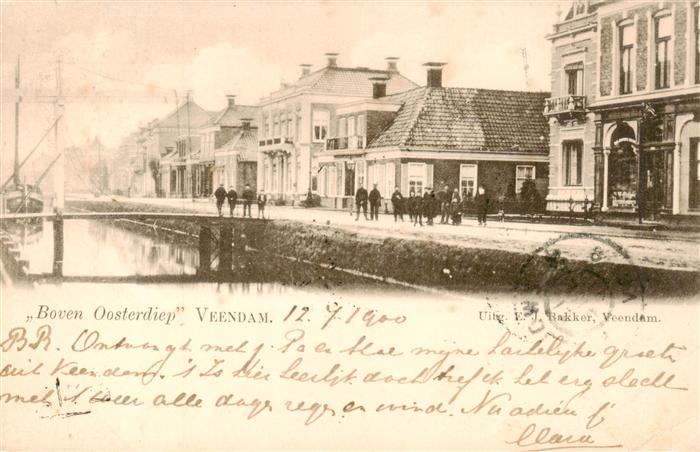 „Boven Oosterdiep" VEENDAM. 12.7.1900
Uitg. E. J. Bakker, Veendam.
BR. Ontvangt met J. Pa en Moe mijne hartelijke groete
uit Veendam. 's Is hier heerlijk doch tref ik het erg slecht
met 't weer alle dage regen en wind. Nu adieu
Clara